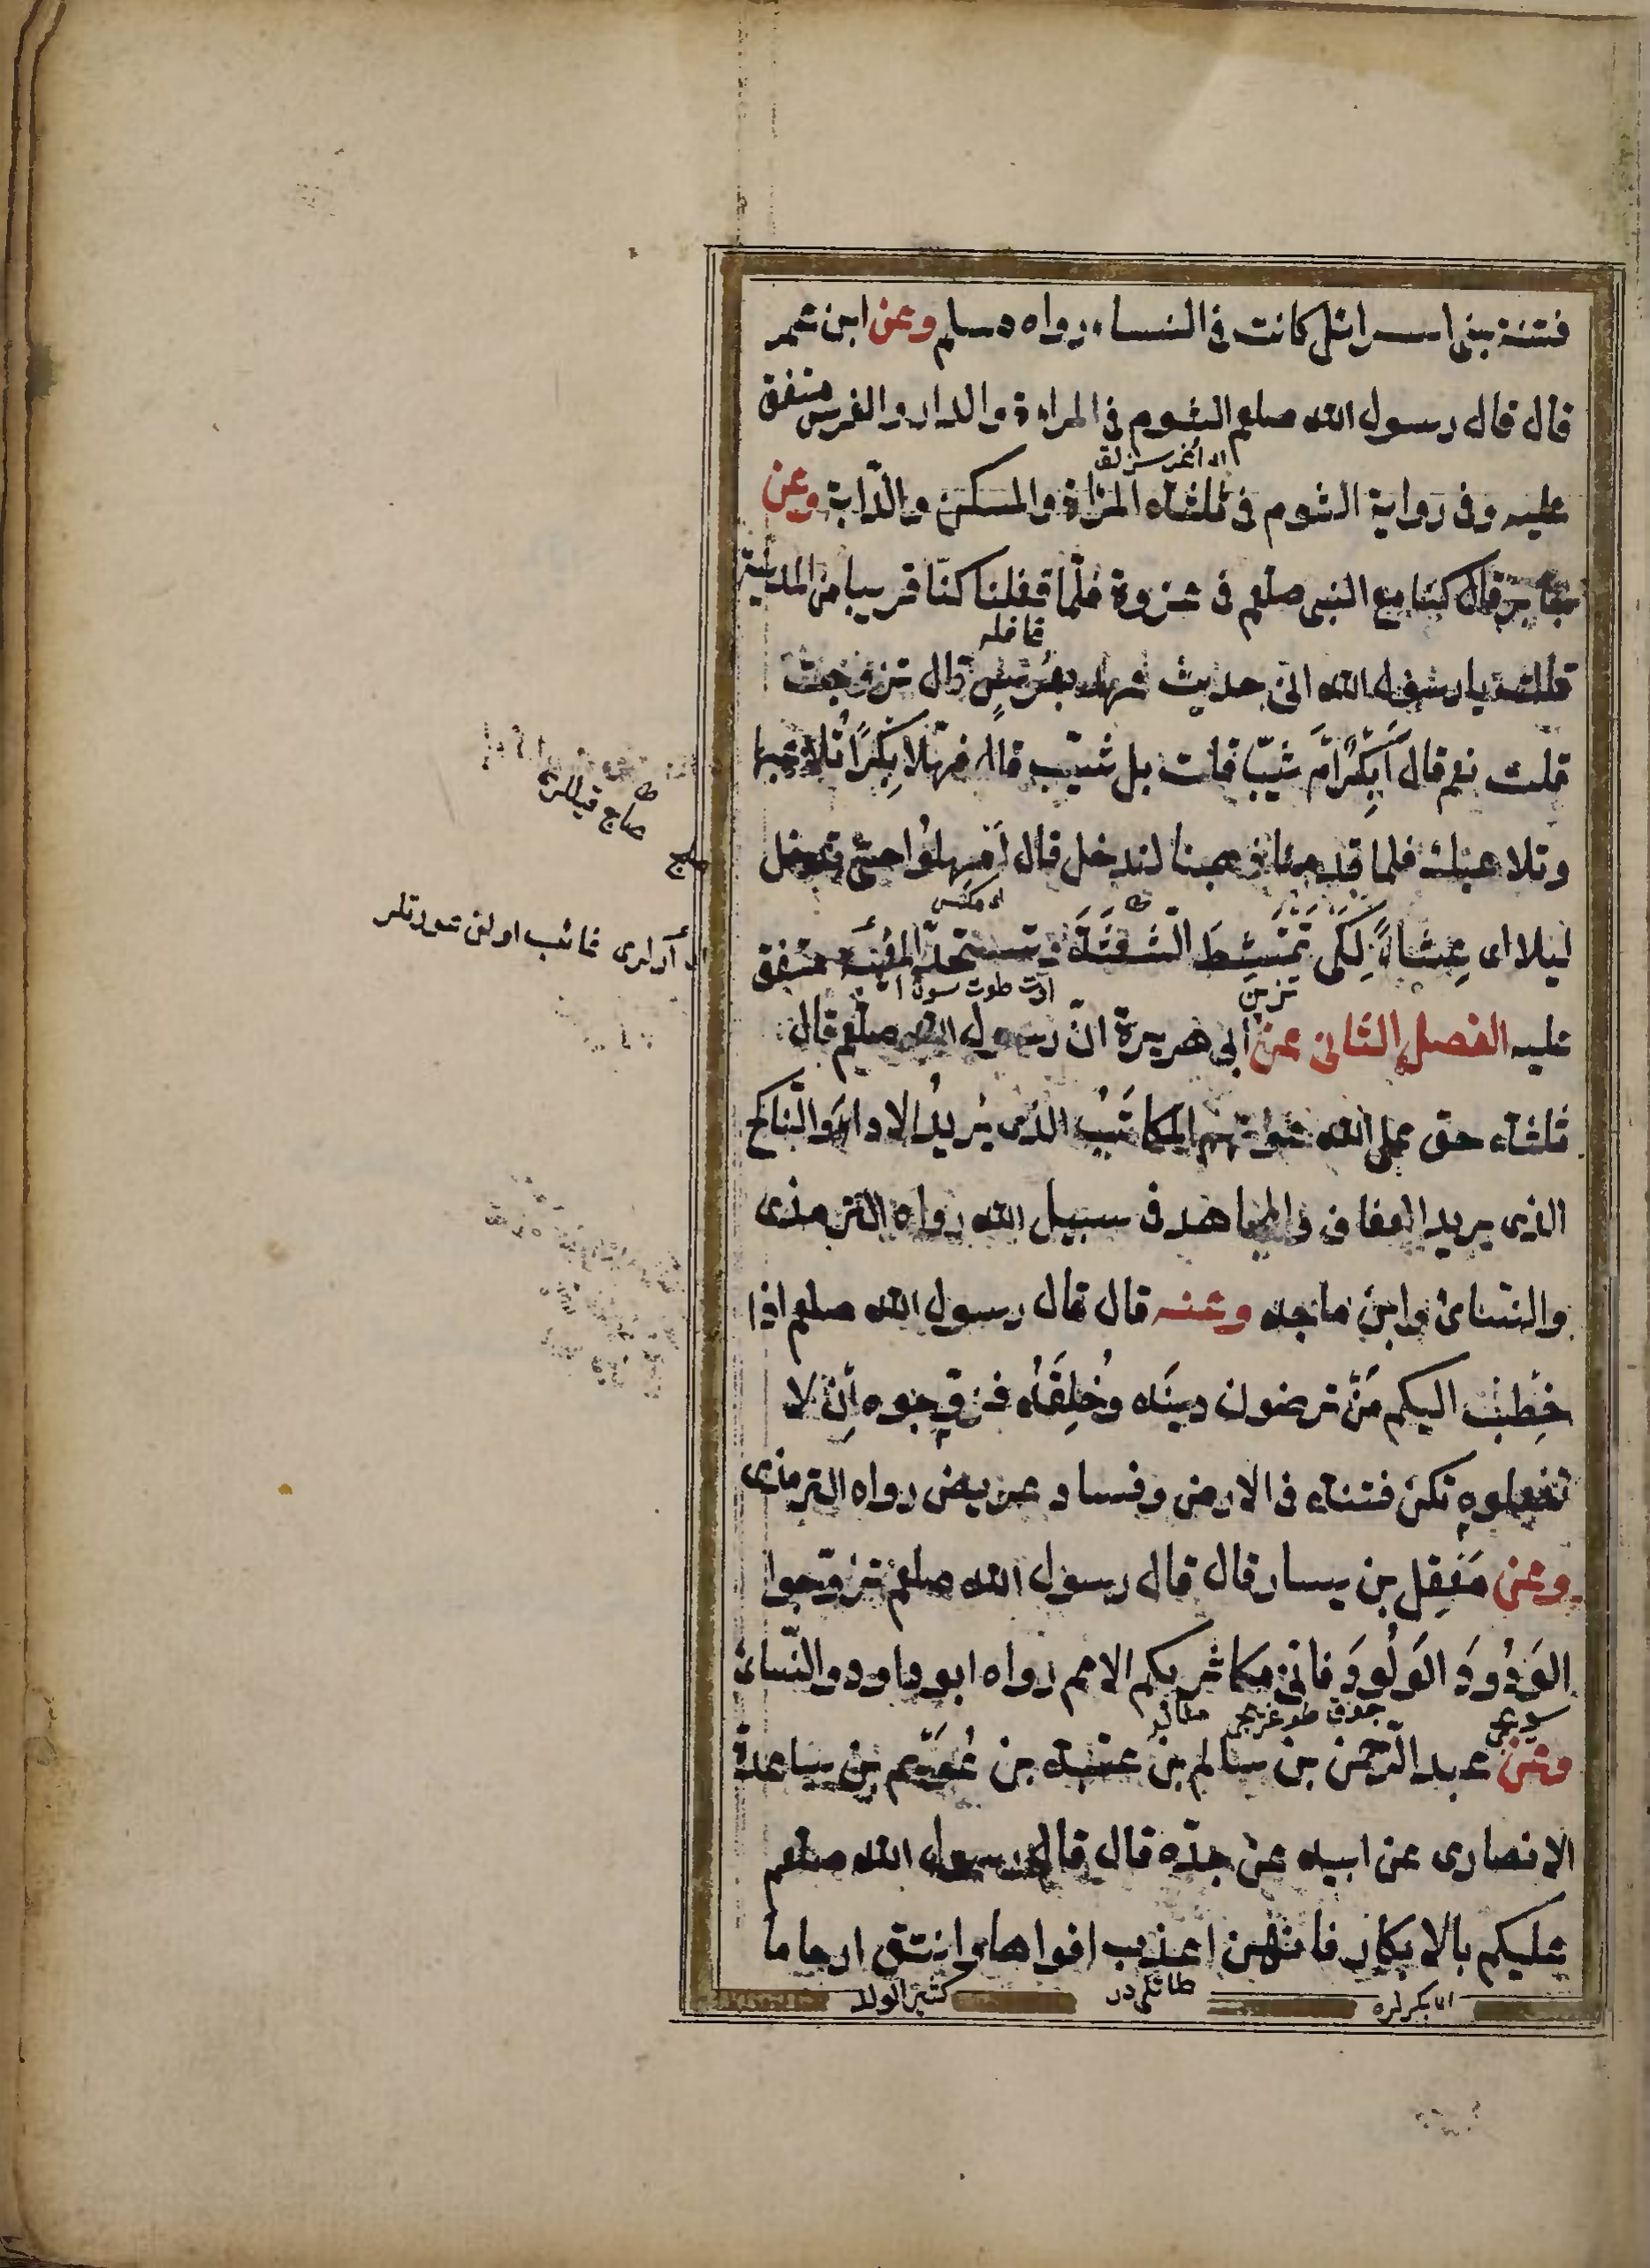 فتنة بنى اسرائل كانت فى النساء رواه مسلم وعن ابن عمر
قال قال رسول الله صلعم الشوم فى المراة والدار والفرس متفق
عليه وفى رواية الشوم فى ثلثة المراة والمسكن والدّابة وعن
جابر قال كنا مع النبى صلعم فى غزوة فلمّا قفلنا كنّا قريبا من المدينة
قافله
قلت يا رسول الله انى حديث عهد بعُرسٍ قال تزوجت
قلت نعم قال أَبِكْرًا أَم ثيّبا قلت بل ثيّب قال فهلّا بِكْرًا تُلاعبها
صاچ قيللرى
وتلاعبك فلما قدمنا ذهبنا لندخل قال اَمْهِلُوا حتّى ندخل
صاچ
ليلا اى عِشاءً لِكَى تَمْتَشِطَ الشَّعِثَةَ وتستحدّ المُغِيبَة متفق
ارلرى غائب اولن عورتلر
تزين
اوت طوت سون
عليه الفصل الثانى عن ابى هريرة انّ رسول الله صلعم قال
ثلثة حق على الله عونهم المكاتَبُ الذى يُريدُ الاداءَ والنّاكح
الذى يريد العفاف والمجاهد فى سبيل الله رواه الترمذى
والنسائ وابن ماجه وعنه قال قال رسول الله صلعم اذا
خطب اليكم مَنْ ترضون دينَه وخُلِقَهُ فزوّجوه اِنْ لا
تفعلوه تكن فتنة فى الارض وفساد عريض رواه الترمذى
وعن مَعْقِل بن يسار قال قال رسول الله صلعم تزوّجوا
الوَدُودَ الوَلُودَ فانّى مكاثر بكم الامم رواه ابو داود والنّسائ
سويجى چوق طوغريجى
وعن عبد الرّحمن بن سالم بن عتبه بن عُوَيْم بن ساعدة
الانصارى عن ابيه عن جدّه قال قال رسول الله صلعم
عليكم بالابكار فانّهن اعذب افواها وانتق ارحاما
بكرلره طاتلى در كثير الولد